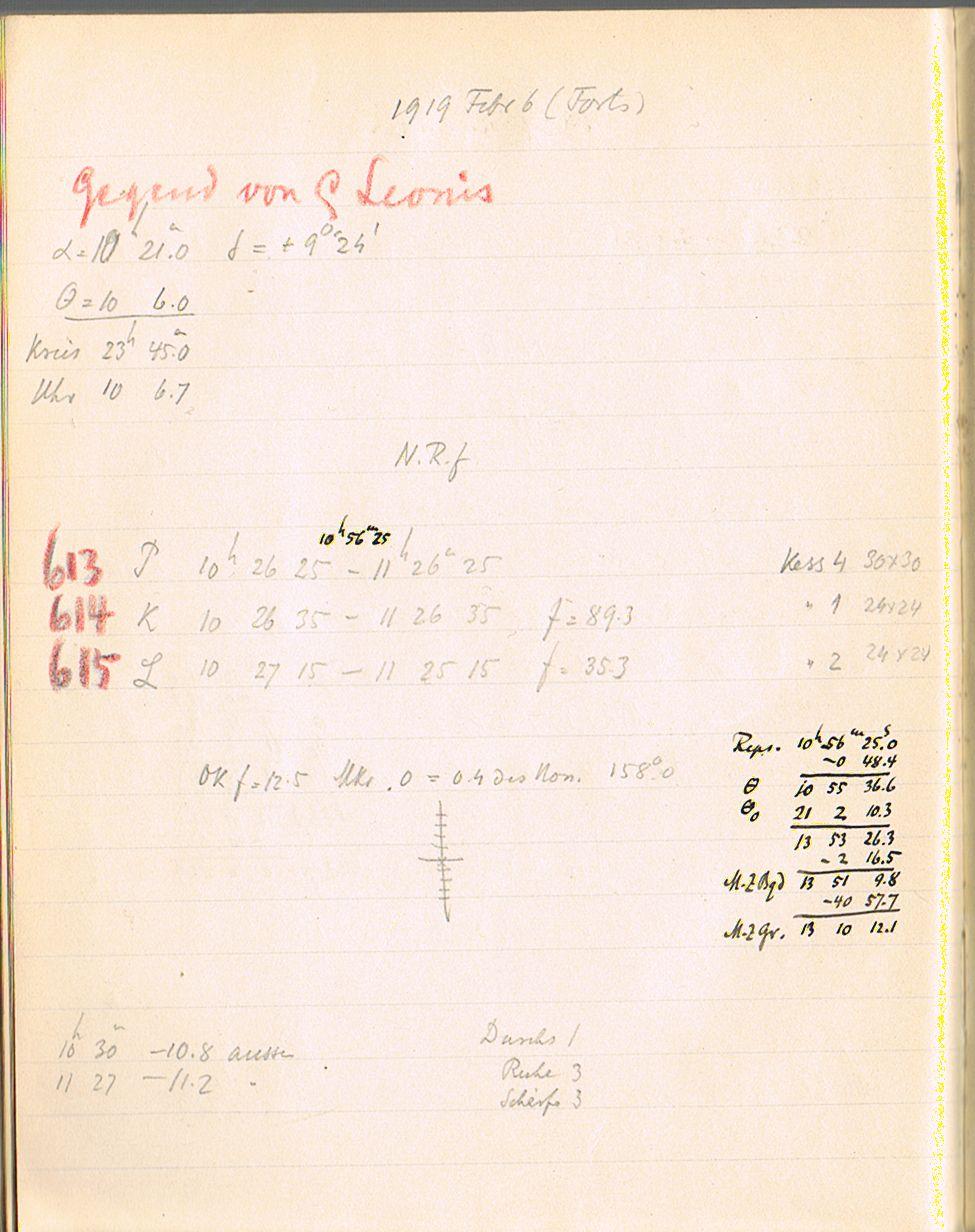 1919 Febr 6 (Forts)
Gegend von ρ Leonis
α = 10ʰ 21ᵐ.0 δ = + 9° 24'
θ = 10 6.0
Kreis 23ʰ 45ᵐ.0
Uhr 10 6.7
N.R.f
10ʰ 56ᵐ 25
613 P 10ʰ 26 25 – 11ʰ 26ᵐ 25 Kass 4 30×30
614 K 10 26 35 – 11 26 35, f = 89.3 " 1 24×24
615 L 10 27 15 – 11 25 15 f = 35.3 " 2 24×24
OK f = 12.5 Mkr. 0 = 0.4 des Non. 158°.0
Reps. 10ʰ 56ᵐ 25ˢ.0
–0 48.4
θ 10 55 36.6
θ₀ 21 2 10.3
13 53 26.3
– 2 16.5
M.Z Bgd 13 51 9.8
–40 57.7
M.Z Gr. 13 10 12.1
10ʰ 30ᵐ –10.8 aussen
11 27 –11.2 "
Durchs 1
Ruhe 3
Schärfe 3